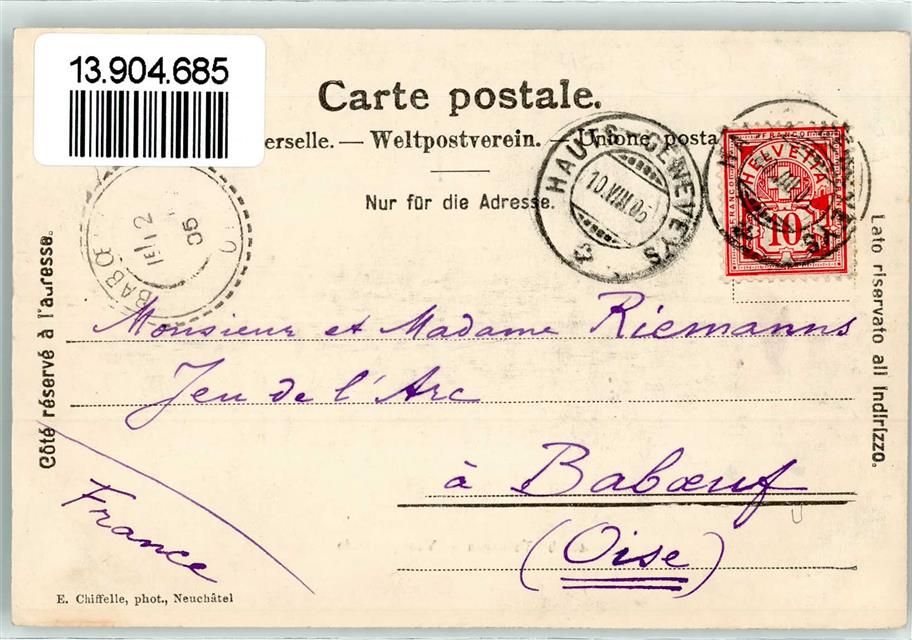 13.904.685
Carte postale.
erselle. — Weltpostverein. — Unione posta
Nur für die Adresse.
HAUTS-GENEVEYS
10.VIII.05
FRANCO
HELVETIA
10
BABŒ
12
05
Côté réservé à l'adresse.
Lato riservato all indirizzo.
Monsieur et Madame Riemanns
Jeu de l'Arc
à Babœuf
(Oise)
France
E. Chiffelle, phot., Neuchâtel